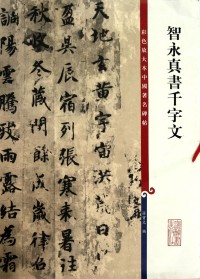 彩色放大本中國著名碑帖
智永真書千字文
天地玄黃宇宙洪荒日月
昃辰宿列張寒來暑往
收冬藏閏餘成歲律
調陽雲騰致雨露結為